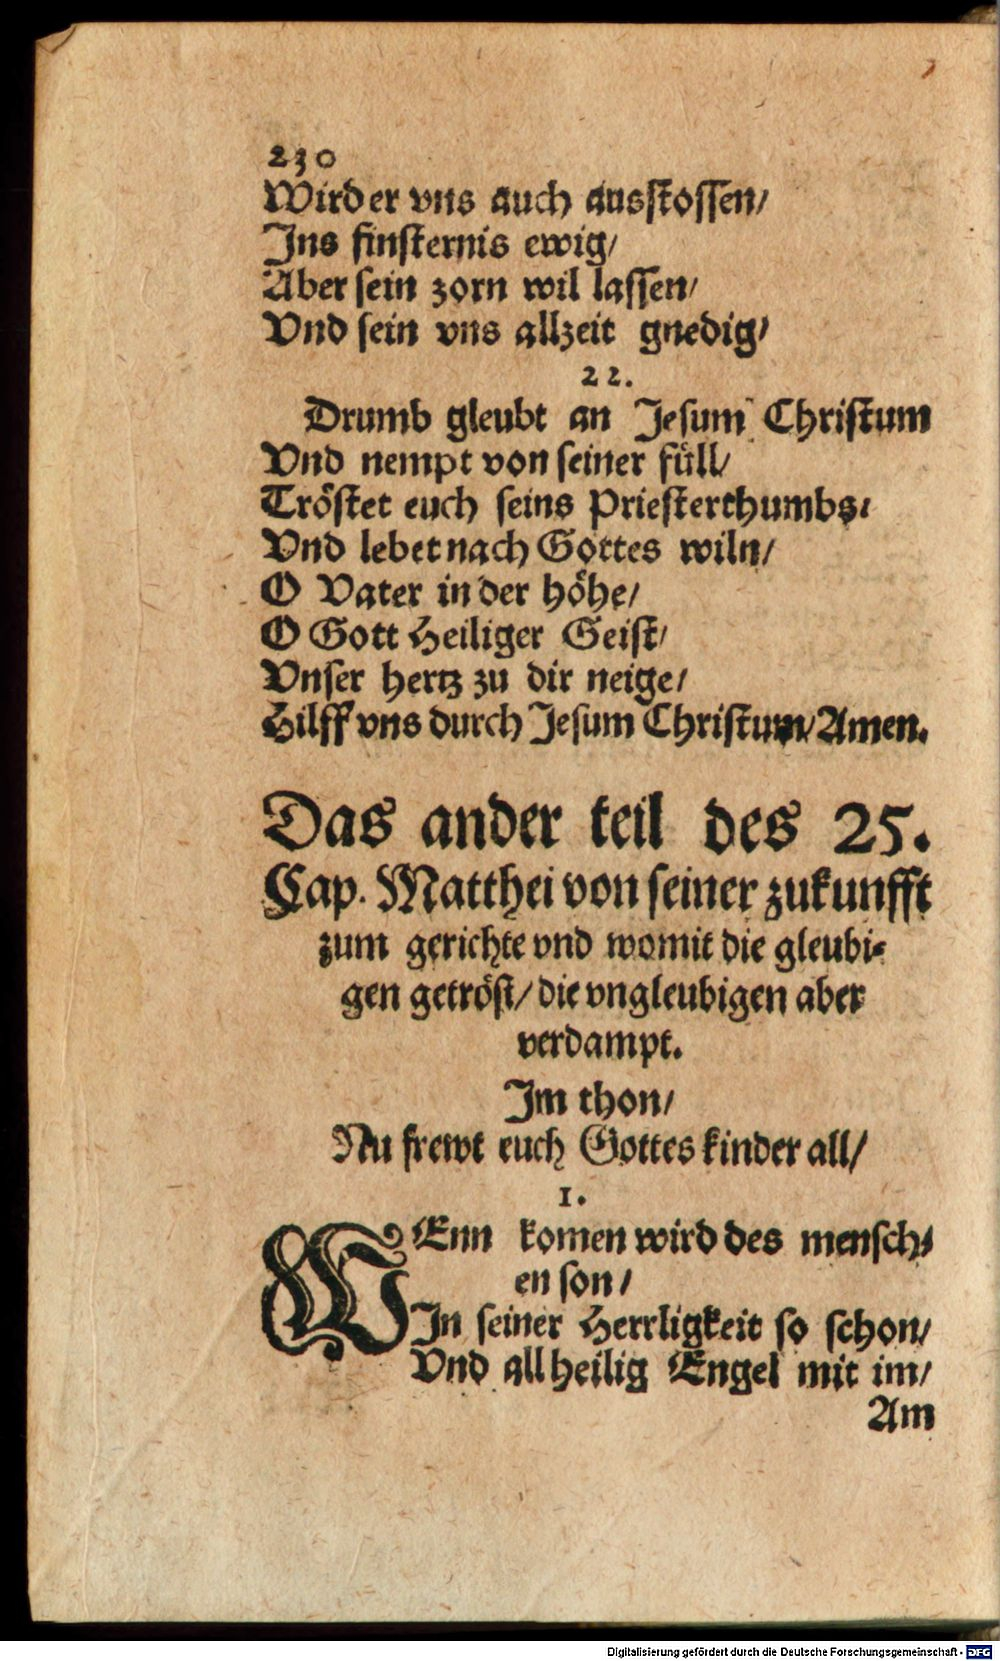 230
Wird er vns auch ausstossen/
Ins finsternis ewig/
Aber sein zorn wil lassen/
Vnd sein vns allzeit gnedig/
22.
Drumb gleubt an Jesum Christum
Vnd nempt von seiner füll/
Tröstet euch seins Priesterthumbs/
Vnd lebet nach Gottes wiln/
O Vater in der höhe/
O Gott Heiliger Geist/
Vnser hertz zu dir neige/
Hilff vns durch Jesum Christum/ Amen.
Das ander teil des 25.
Cap. Matthei von seiner zukunfft
zum gerichte vnd womit die gleubi-
gen getröst/ die vngleubigen aber
verdampt.
Im thon/
Nu frewt euch Gottes kinder all/
1.
WEnn komen wird des mensch-
en son/
In seiner Herrligkeit so schon/
Vnd all heilig Engel mit im/
Am
Digitalisierung gefördert durch die Deutsche Forschungsgemeinschaft - DFG